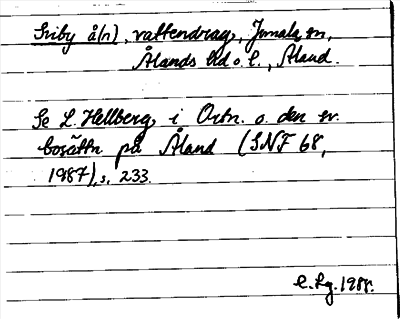 Sviby å(n), vattendrag, Jomala sn,
Ålands hd o. l., Åland.
Se L. Hellberg, i Ortn. o. den sv.
bosättn på Åland (SNF 68,
1987), s. 233.
1988.